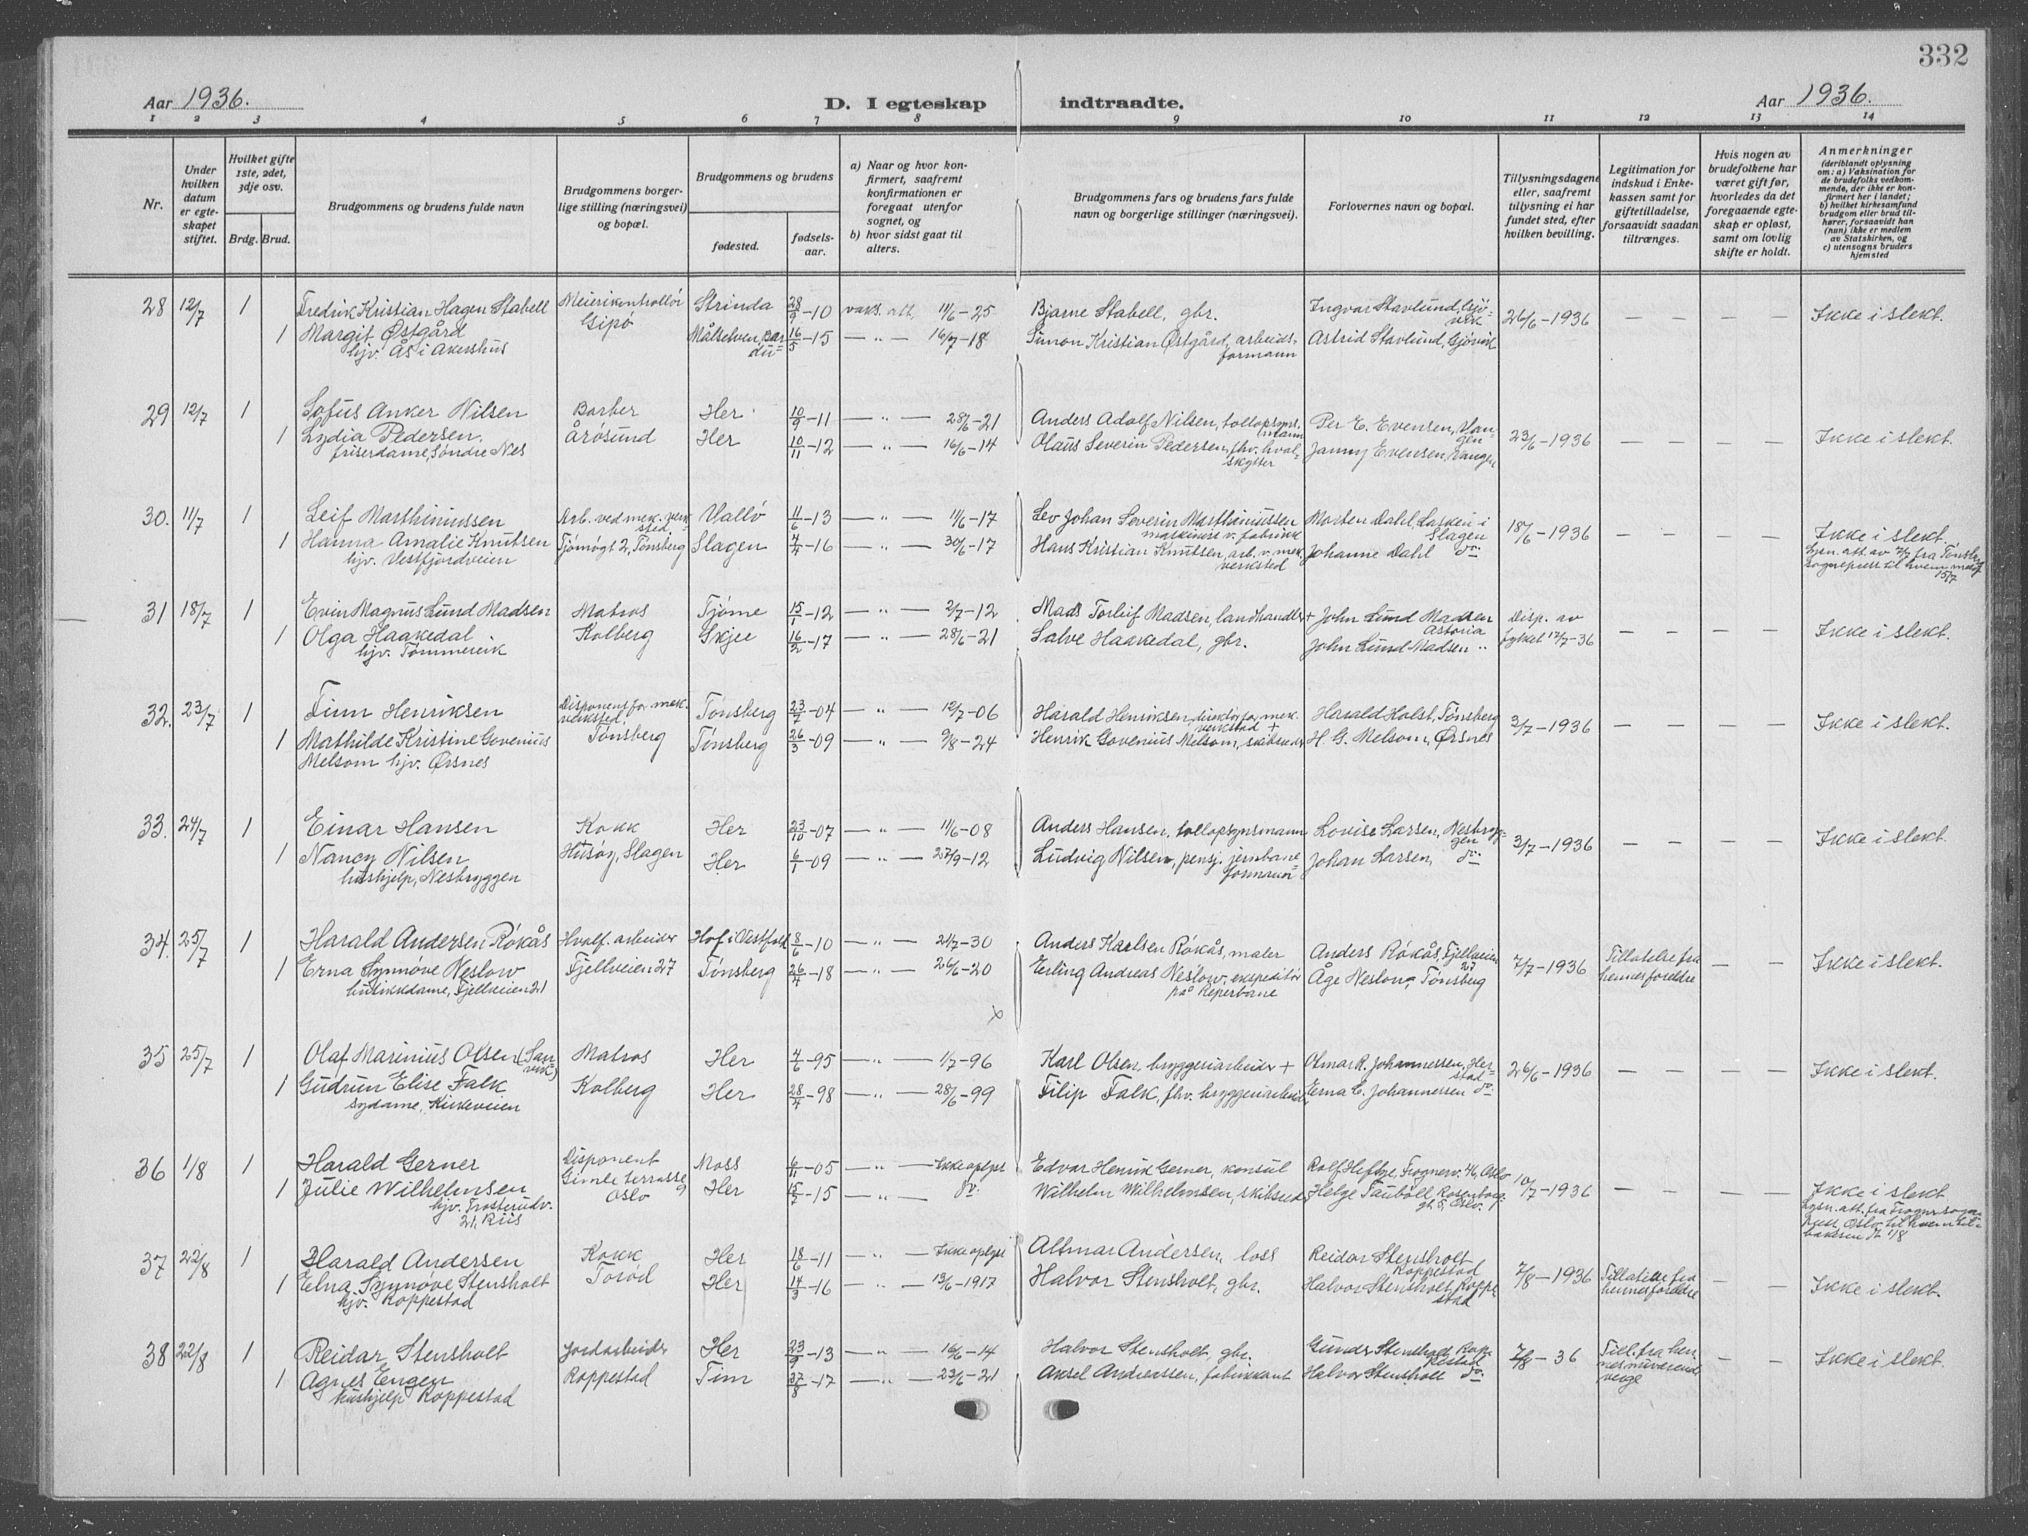 332
Aar 1936.
D. I egteskap indtraadte.
Aar 1936.
1 2 3 4 5 6 7 8 9 10 11 12 13 14
Nr.
Under hvilken datum er egte-skapet stiftet.
Hvilket gifte 1ste, 2det, 3dje osv.
Brdg. Brud.
Brudgommens og brudens fulde navn
Brudgommens borger-lige stilling (næringsvei) og bopæl.
Brudgommens og brudens
fødested.
fødsels-aar.
a) Naar og hvor kon-firmert, saafremt konfirmationen er foregaat utenfor sognet, og
b) hvor sidst gaat til alters.
Brudgommens fars og brudens fars fulde navn og borgerlige stillinger (næringsvei).
Forlovernes navn og bopæl.
Tillysningsdagene eller, saafremt tillysning ei har fundet sted, efter hvilken bevilling.
Legitimation for indskud i Enke-kassen samt for giftetilladelse, forsaavidt saadan tiltrænges.
Hvis nogen av brudefolkene har været gift før, hvorledes da det foregaaende egte-skap er opløst, samt om lovlig skifte er holdt.
Anmerkninger
(deriblandt oplysning om: a) Vaksination for de brudefolks vedkom-mende, der ikke er kon-firmert her i landet;
b) hvilket kirkesamfund brudgom eller brud til-hører, forsaavidt han (hun) ikke er medlem av Statskirken, og
c) utensogns bruders hjemsted
28 12/7 1 Fredrik Kristian Hagen Stabell Meierikontrollør Strinda 28/9-10 vaks. att. 11/6-25 Bjarne Stabell, gbr. Ingvar Stavlund, Gjø-vik 26/6-1936 — — — Ikke i slekt.
1 Margit Østgård Gipø Målselven, Bar-du 16/5-15 — " — 16/7-18 Simon Kristian Østgård, arbeids-formann Astrid Stavlund, Gjøvik
hjv. Ås i Akershus
29 12/7 1 Sofus Anker Nilsen Barber Her 10/9-11 — " — 28/6-21 Anders Adolf Nilsen, tollopsyns-mann Per E. Evensen, Van-gen 23/6-1936 — — — Ikke i slekt.
1 Lydia Pedersen Årøsund Her 10/11-12 — " — 16/6-14 Olaus Severin Pedersen, fhv. hval-skytter Janny Evensen, Vangen
friserdame, Søndre Nes
30. 11/7 1 Leif Marthiniussen Arb. ved mek. verk-sted Vallø 11/6-13 — " — 11/6-17 Lev Johan Severin Marthiniussen maskinist v. fabrikk Morten Dahl, Basken i Slagen 18/6-1936 — — — Ikke i slekt.
1 Hanna Amalie Knutsen Tjømegt 2, Tønsberg Slagen 4/4-16 — " — 30/6-17 Hans Kristian Knutsen, arb. v. mek. verksted Johanne Dahl do Lysn. att. av 7/7 fra Tønsb. sogneprest til hvem meld 15/7
hjv. Vestfjordveien
31 18/7 1 Evin Magnus Lund Madsen Matros Tjøme 15/1-12 — " — 2/7-12 Mads Torleif Madsen, landhandler + John Lund Madsen Astoria Disp. av fylket 17/7-36 — — — Ikke i slekt.
1 Olga Haakedal Kolberg Skjee 16/2-17 — " — 28/6-21 Salve Haakedal, gbr. John Lund Madsen "
hjv. Tømmereik
32. 23/7 1 Finn Henriksen Disponent for mek. verksted. Tønsberg 23/7-04 — " — 12/7-06 Harald Henriksen, direktør for mek. verksted + Harald Holst, Tønsberg 3/7-1936 — — — Ikke i slekt.
1 Mathilde Kristine Govenius Tønsberg Tønsberg 26/3-09 — " — 9/8-24 Henrik Govenius Melsom, skibsreder H. G. Melsom, Ørsnes
Melsom hjv. Ørsnes
33. 24/7 1 Einar Hansen Kokk Her 23/10-07 — " — 11/6-08 Anders Hansen, tollopsynsmann Lovise Larsen, Nesbryg-gen 3/7-1936 — — — Ikke i slekt.
1 Nancy Nilsen Husøy, Slagen Her 6/1-09 — " — 27/9-12 Ludvig Nilsen, pensj. jernbane-formann Johan Larsen, do
hushjelp, Nesbryggen
34. 25/7 1 Harald Andersen Røkås Hvalf. arbeider Hof i Vestfold 8/6-10 — " — 21/7-30 Anders Karlsen Røkås, maler Anders Røkås, Fjellveien 27 7/7-1936 Tillatelse fra hennes foreldre — — Ikke i slekt.
1 Erna Synnøve Neslow Fjellveien 27 Tønsberg 26/4-18 — " — 26/6-20 Erling Andreas Neslow, ekspeditør på Reperbane Åge Neslow, Tønsberg
butikkdame, Fjellveien 21
x
35 25/7 1 Olaf Marinius Olsen (San-vik) Matros Her 4/6-95 — " — 1/7-96 Karl Olsen, bryggeriarbeider + Olmar R. Johannessen, Her-stad 26/6-1936 — — — Ikke i slekt.
1 Gudrun Elise Falk Kolberg Her 28/4-98 — " — 28/6-99 Filip Falk, fhv. bryggeriarbeid. Erna E. Johannessen do
sydame, Kirkeveien
36 1/8 1 Harald Gerner Disponent Moss 6/11-05 — " — Ikke oplyst Edvar Henrik Gerner, konsul Rolf Heftye, Frognerv. 46, Oslo 10/7-1936 — — — Ikke i slekt
1 Julie Wilhelmsen Gimle terrasse 9 Oslo Her 15/7-15 — " — do. Wilhelm Wilhelmsen, skibsred. Helge Taubøll, Rosenborg-gt. 5, Oslo. Lysn. att. fra Frogner sogne-prest, Oslo, til hvem til-baksen dt 1/8
hjv. Trosterudv. 21, Riis
37 22/8 1 Harald Andersen Kokk Her 18/6-11 — " — Ikke oplyst Altmar Andersen, loss Reidar Stensholt Roppestad 7/8-1936 Tillatelse fra hennes foreldre — — Ikke i slekt.
1 Elna Synnøve Stensholt Torød Her 14/3-16 — " — 13/6-1917 Halvor Stensholt, gbr. Halvor Stensholt, Roppe-stad
hjv. Roppestad
38 22/8 1 Reidar Stensholt Jordarbeider Her 23/9-13 — " — 16/6-14 Halvor Stensholt, gbr. Gunder Stensholt Rop-pestad 7/8-36 Till. fra hen-nes nuværende verge — — Ikke i slekt.
1 Agnes Engen Roppestad Tim 27/8-17 — " — 23/6-21 Aksel Anderssen, fabrikkant Halvor Stensholt do.
hushjelp Roppestad